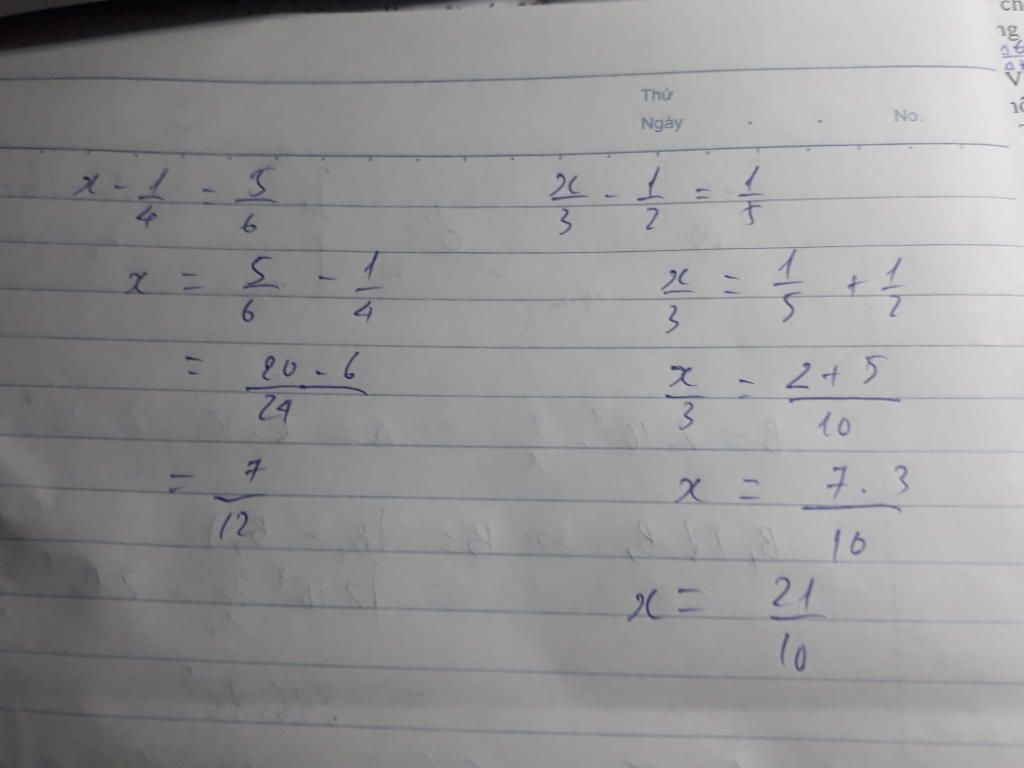 Thứ
Ngày . . No.
x - 1/4 = 5/6
x = 5/6 - 1/4
= 20 - 6/24
= 7/12
x/3 - 1/2 = 1/5
x/3 = 1/5 + 1/2
x/3 = 2 + 5/10
x = 7 . 3/10
x = 21/10